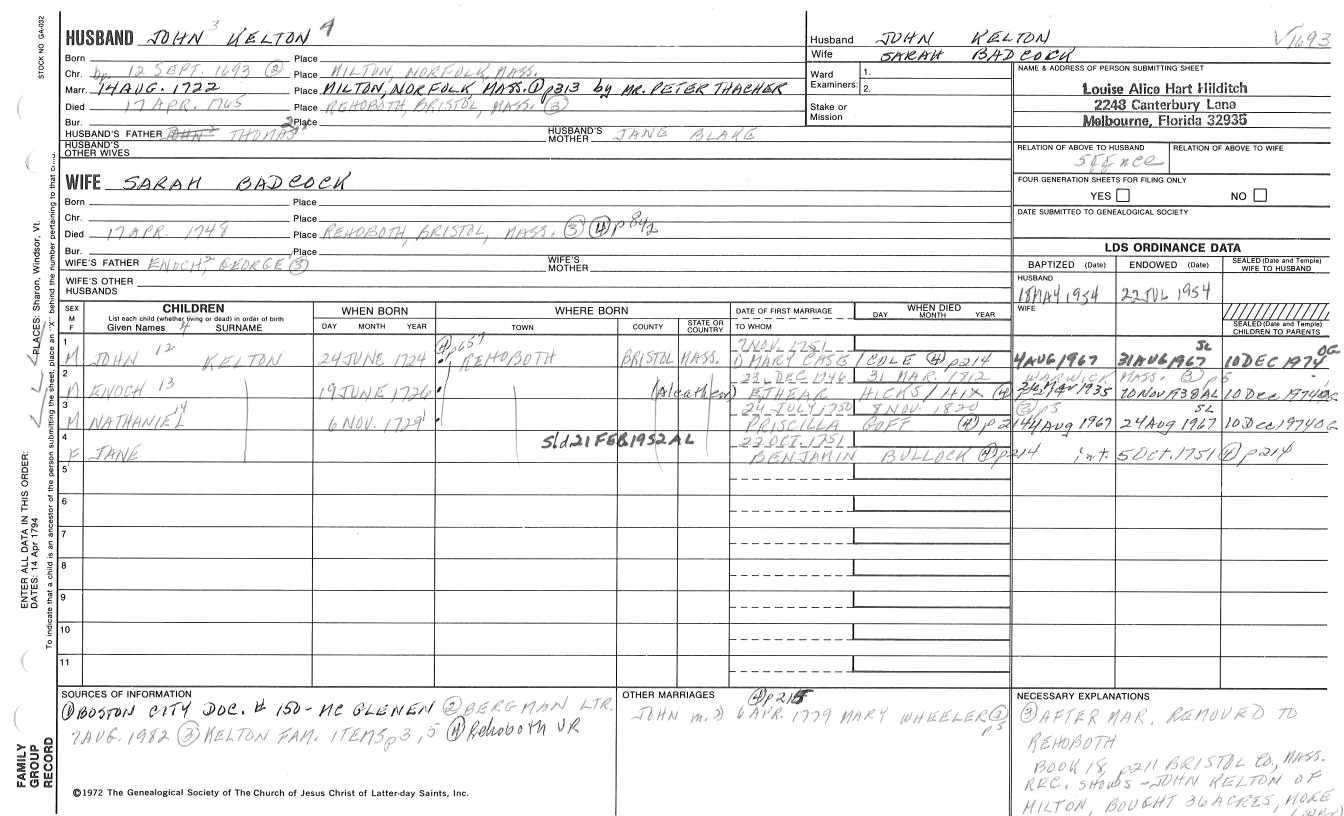 STOCK NO. GA-032
HUSBAND JOHN 3 KELTON 4
Born Place
Chr. bp. 12 SEPT. 1693 ② Place MILTON, NORFOLK, MASS.
Marr. 14 AUG. 1722 Place MILTON, NORFOLK MASS. ① p313 by MR. PETER THACHER
Died 17 APR. 1765 Place REHOBOTH, BRISTOL, MASS. ③
Bur. Place
HUSBAND'S FATHER JOHN 2 THOMAS 2 HUSBAND'S MOTHER JANE BLAKE
HUSBAND'S OTHER WIVES
Husband JOHN KELTON
Wife SARAH BADCOCK
√1693
Ward Examiners: 1.
2.
Stake or Mission
NAME & ADDRESS OF PERSON SUBMITTING SHEET
Louise Alice Hart Hilditch
2248 Canterbury Lane
Melbourne, Florida 32935
RELATION OF ABOVE TO HUSBAND RELATION OF ABOVE TO WIFE
FOUR GENERATION SHEETS FOR FILING ONLY
YES NO
DATE SUBMITTED TO GENEALOGICAL SOCIETY
WIFE SARAH BADCOCK
Born Place
Chr. Place
Died 17 APR. 1748 Place REHOBOTH, BRISTOL, MASS. ③ ④ p 842
Bur. Place
WIFE'S FATHER ENOCH, 2 GEORGE ③ WIFE'S MOTHER
WIFE'S OTHER HUSBANDS
LDS ORDINANCE DATA
BAPTIZED (Date) ENDOWED (Date) SEALED (Date and Temple) WIFE TO HUSBAND
HUSBAND
18 MAY 1954 22 JUL 1954
WIFE
SEALED (Date and Temple) CHILDREN TO PARENTS
SEX M F
CHILDREN
List each child (whether living or dead) in order of birth
Given Names SURNAME
WHEN BORN
DAY MONTH YEAR
WHERE BORN
TOWN COUNTY STATE OR COUNTRY
DATE OF FIRST MARRIAGE
TO WHOM
WHEN DIED
DAY MONTH YEAR
1 M JOHN 4 12. KELTON 24 JUNE 1724 ④ p657 REHOBOTH BRISTOL MASS. 7 NOV. 1751
① MARY CASE / COLE ④ p214 4 AUG 1967 31 AUG 1967 SL 10 DEC 1974 OG
2 M ENOCH 13 19 JUNE 1726 (Aleathea) 22 DEC 1746 31 MAR. 1812 WARWICK MASS. ③ p5
BETHEAR HICKS / HIX ④ 26 Mar 1935 10 Nov 1938 AL 10 Dec 1974 OG
3 M NATHANIEL 14 6 NOV. 1729 24 JULY 1750 8 NOV. 1820 ③ p5
PRISCILLA GOFF ④ p 214 4 Aug 1967 24 Aug 1967 SL 10 Dec 1974 OG
4 F JANE Sld 21 FEB 1952 AL 22 OCT. 1751
BENJAMIN BULLOCK ④ p214 int. 5 OCT. 1751 ④ p214
5
6
7
8
9
10
11
SOURCES OF INFORMATION
① BOSTON CITY DOC. # 150 - MC GLENEN ② BERGMAN LTR.
7 AUG. 1982 ③ KELTON FAM. ITEMS p 3, 5 ④ Rehoboth VR
OTHER MARRIAGES
④ p215
JOHN m. 2) 6 APR. 1779 MARY WHEELER ③ p5
NECESSARY EXPLANATIONS
③ AFTER MAR. REMOVED TO
REHOBOTH
BOOK 18, p211 BRISTOL CO., MASS.
REC. SHOWS - JOHN KELTON OF
MILTON, BOUGHT 36 ACRES, MORE
©1972 The Genealogical Society of The Church of Jesus Christ of Latter-day Saints, Inc.
FAMILY GROUP RECORD
ENTER ALL DATA IN THIS ORDER:
DATES: 14 Apr 1794
PLACES: Sharon, Windsor, Vt.
To indicate that a child is an ancestor of the person submitting the sheet, place an "X" behind the number pertaining to that child.